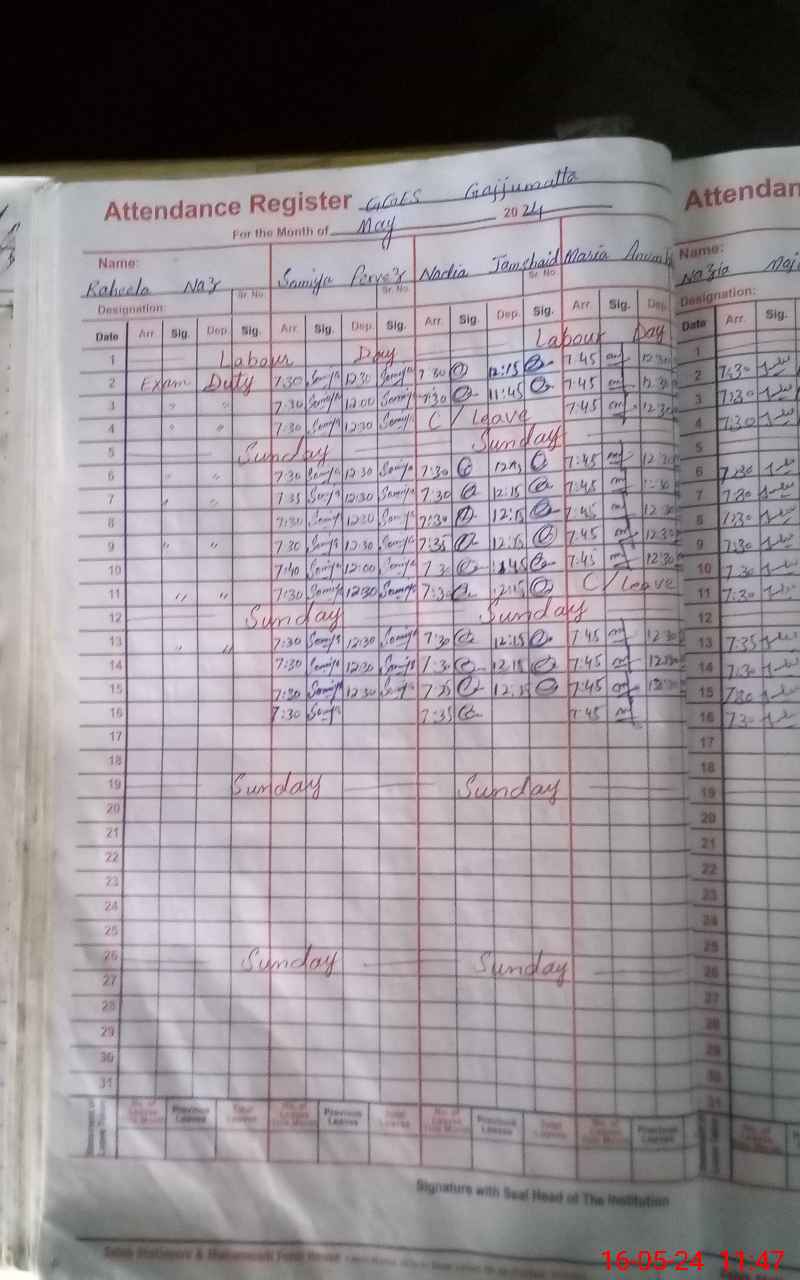 Attendance Register GGES Gajjumatta
For the Month of May 2024
Name: Raheela Naz Samiya Pervez Nadia Jamshaid Maria
Sr. No. Sr. No. Sr. No.
Designation:
Date Arr. Sig. Dep. Sig. Arr. Sig. Dep. Sig. Arr. Sig. Dep. Sig. Arr. Sig. Dep.
1 Labour Day Labour Day
2 Exam Duty 7:30 Samiya 12:30 Samiya 7:30 12:15 7:45 12:30
3 " " 7:30 Samiya 12:00 Samiya 7:30 11:45 7:45 12:30
4 " " 7:30 Samiya 12:30 Samiya C/leave 7:45 12:30
5 Sunday Sunday
6 " " 7:30 Samiya 12:30 Samiya 7:30 7:45 12:30
7 " " 7:35 Samiya 12:30 Samiya 7:30 12:15 7:45 12:30
8 7:30 Samiya 12:30 Samiya 7:30 12:15 7:45 12:30
9 " " 7:30 Samiya 12:30 Samiya 7:35 12:15 7:45 12:30
10 7:40 Samiya 12:00 Samiya 7:30 11:45 7:45 12:30
11 " " 7:30 Samiya 12:30 Samiya 7:30 12:15 C/Leave
12 Sunday Sunday
13 " " 7:30 Samiya 12:30 Samiya 7:30 12:15 7:45 12:30
14 7:30 Samiya 12:30 Samiya 7:30 12:15 7:45 12:30
15 7:30 Samiya 12:30 Samiya 7:35 12:15 7:45 12:30
16 7:30 Samiya 7:35 7:45
17
18
19 Sunday Sunday
20
21
22
23
24
25
26 Sunday Sunday
27
28
29
30
31
No. of Leaves This Month Previous Leaves Total Leaves No. of Leaves This Month Previous Leaves Total Leaves No. of Leaves This Month Previous Leaves Total Leaves No. of Leaves This Month Previous Leaves
Signature with Seal Head of The Institution
Attendan
Name: Nazia
Designation:
Date Arr. Sig.
1
2 7:30
3 7:30
4 7:30
5
6 7:30
7 7:30
8 7:30
9 7:30
10 7:30
11 7:30
12
13 7:35
14 7:30
15 7:30
16 7:30
17
18
19
20
21
22
23
24
25
26
27
28
29
30
31
16-05-24 11:47